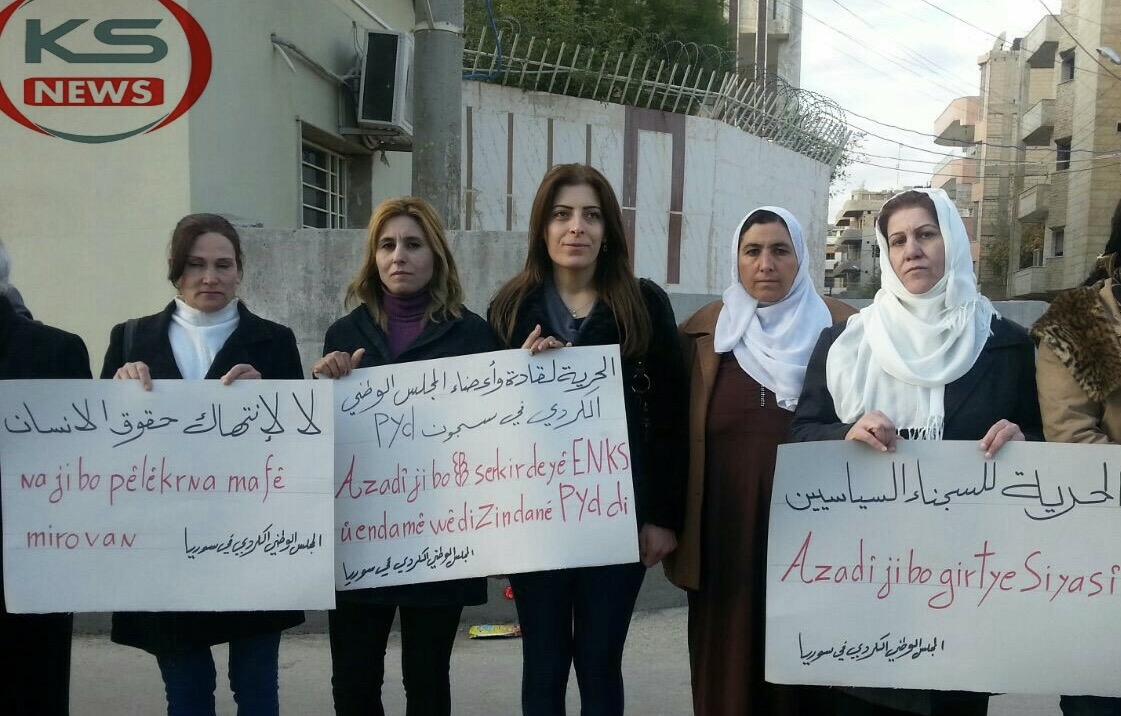 KS
NEWS
لا لإنتهاك حقوق الانسان
Na ji bo pêlêkrna mafê
mirovan
المجلس الوطني الكردي في سوريا
الحرية لقادة وأعضاء المجلس الوطني
الكردي في سجون PYd
Azadî ji bo serkirdeyê ENKS
û endamê wê di Zindané PYd di
المجلس الوطني الكردي في سوريا
الحرية للسجناء السياسيين
Azadî ji bo girtye Siyasî
المجلس الوطني الكردي في سوريا